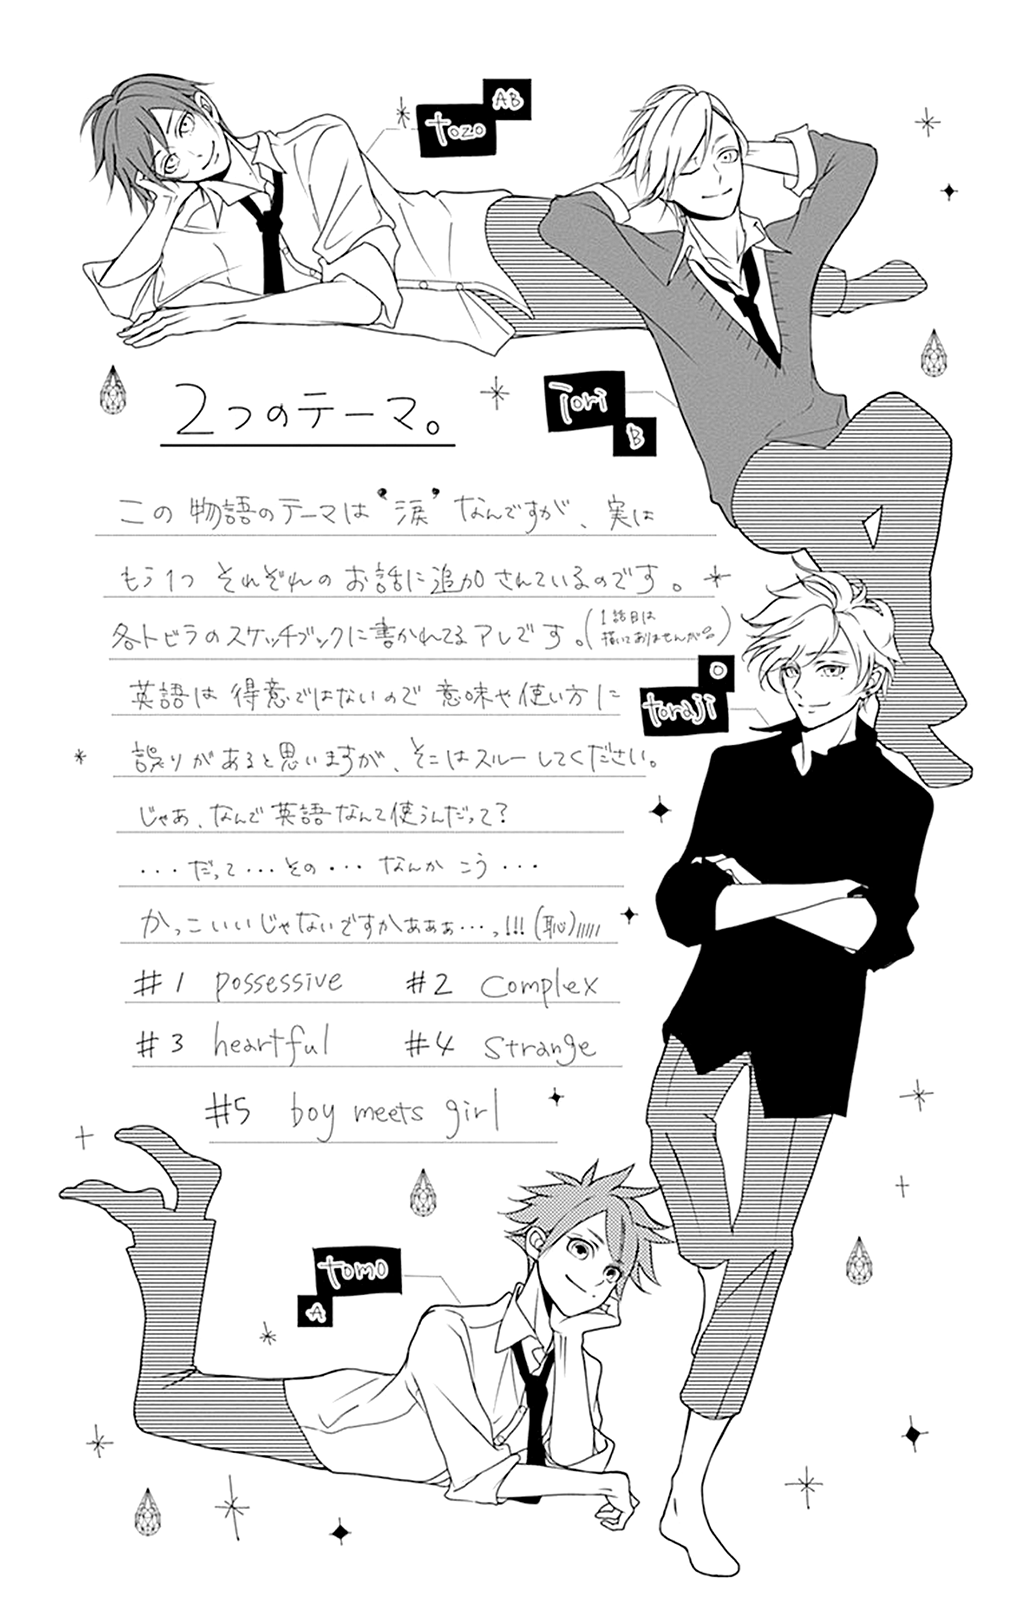 AB
tozo
iori
B
2つのテーマ。
この物語のテーマは❜涙❜なんですが、実は
もう1つ それぞれの お話に追加されているのです。
各トビラのスケッチブックに書かれてるアレです。(1話目は
描いてありませんが)
英語は得意ではないので 意味や使い方に
誤りがあると思いますが、そこはスルーしてください。
じゃあ、なんで英語なんて使うんだって?
・・・だって・・・その・・・ なんか こう・・・
かっこいいじゃないですかぁぁぁ…っ!!!(恥)
O
toraji
#1 possessive #2 complex
#3 heartful #4 strange
#5 boy meets girl
tomo
A